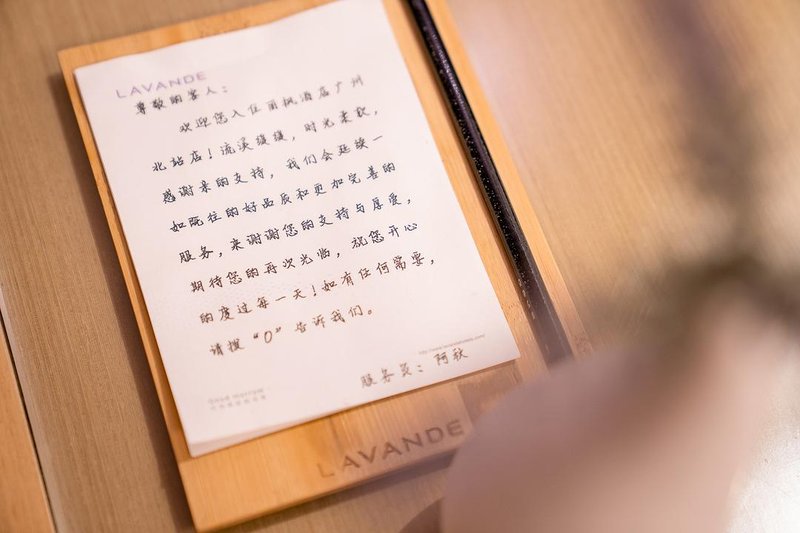 LAVANDE
尊敬的客人：
欢迎您入住丽枫酒店广州
北站店！流溪缓缓，时光柔软，
感谢来的支持，我们会延续一
如既往的好品质和更加完善的
服务，来谢谢您的支持与厚爱，
期待您的再次光临，祝您开心
的度过每一天！如有任何需要，
请拨“0”告诉我们。
服务员：阿秋
LAVANDE